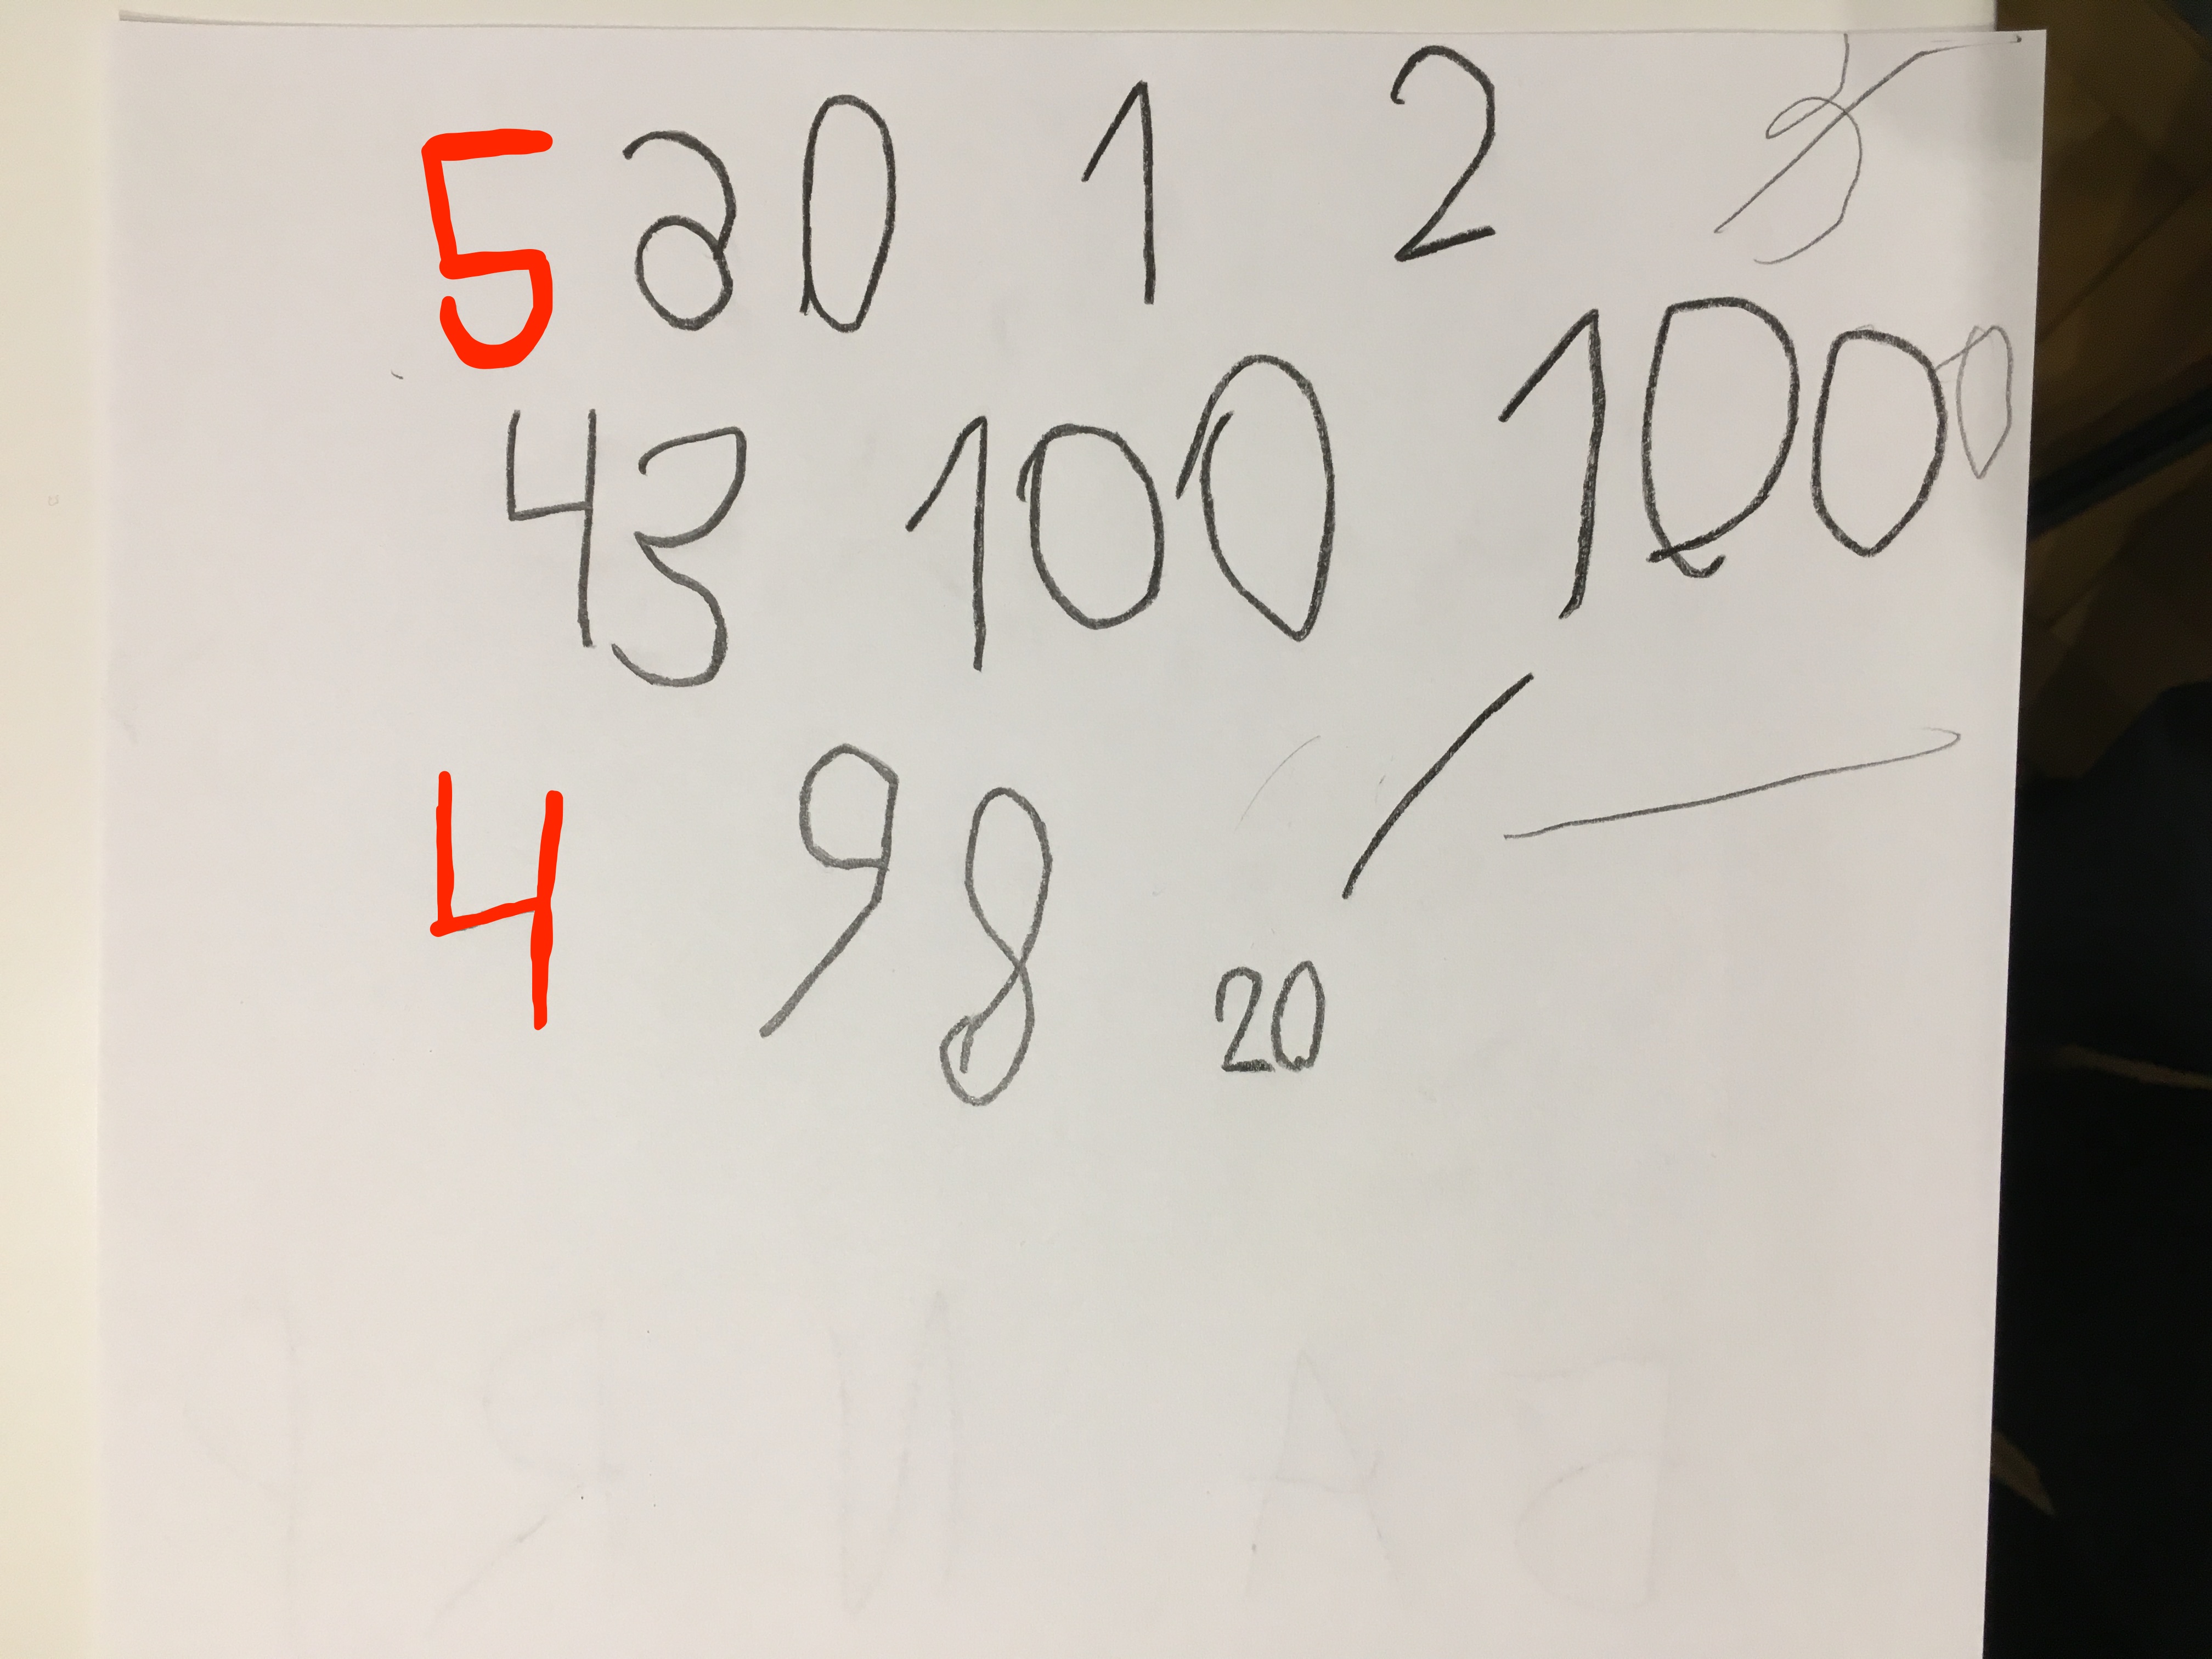 5 20 1 2
43 100 1000
4 98 20